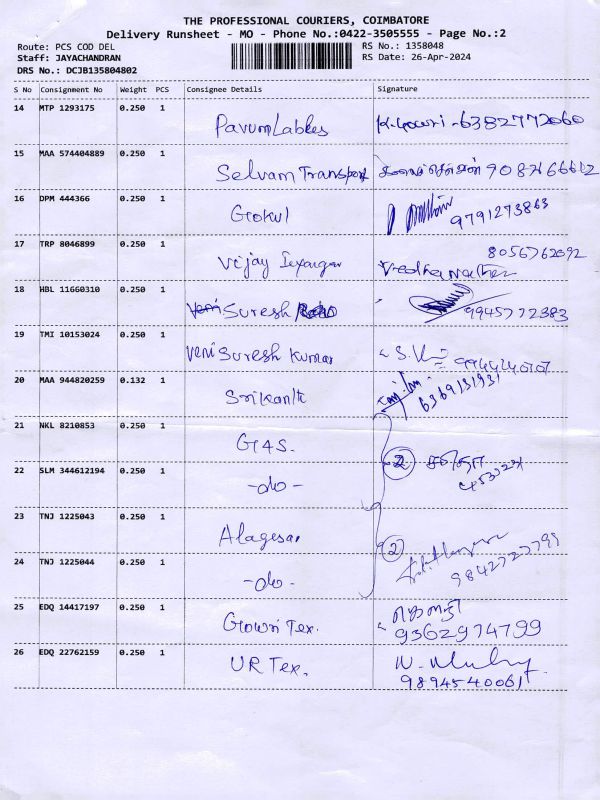 THE PROFESSIONAL COURIERS, COIMBATORE
Delivery Runsheet - MO - Phone No.:0422-3505555 - Page No.:2
Route: PCS COD DEL RS No.: 1358048
Staff: JAYACHANDRAN RS Date: 26-Apr-2024
DRS No.: DCJB135804802
S No Consignment No Weight PCS Consignee Details Signature
14 MTP 1293175 0.250 1
Pavum Lables K. Gowri - 6382772060
15 MAA 574404889 0.250 1
Selvam Transport
16 DPM 444366 0.250 1
Gokul 9791273863
17 TRP 8046899 0.250 1 8056762092
Vijay
18 HBL 11660310 0.250 1
Suresh 9945772383
19 TMI 10153024 0.250 1
Veni Suresh Kumar S.
20 MAA 944820259 0.132 1
Srikanth 6369131931
21 NKL 8210853 0.250 1
G4S. 2
22 SLM 344612194 0.250 1
-do-
23 TNJ 1225043 0.250 1
Alagesan 2
24 TNJ 1225044 0.250 1
-do-
25 EDQ 14417197 0.250 1
Gowri Tex. 9362974799
26 EDQ 22762159 0.250 1
UR Tex. 9894540061